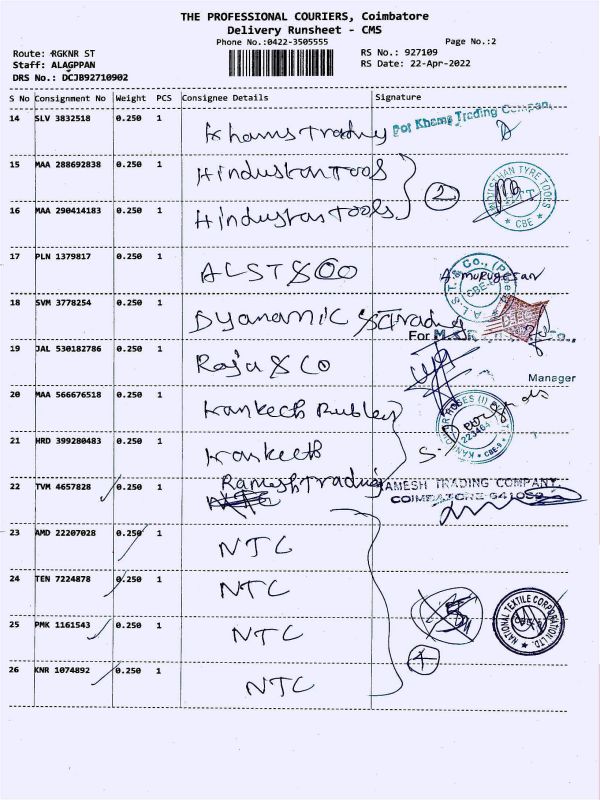 THE PROFESSIONAL COURIERS, Coimbatore
Delivery Runsheet - CMS
Phone No.:0422-3505555 Page No.:2
Route: RGKNR ST RS No.: 927109
Staff: ALAGPPAN RS Date: 22-Apr-2022
DRS No.: DCJB92710902
S No Consignment No Weight PCS Consignee Details Signature
14 SLV 3832518 0.250 1 Khams Trading For Khams Trading Company
15 MAA 288692838 0.250 1 Hindustan Tools
2 HINDUSTHAN TYRE TOOLS CBE
16 MAA 290414183 0.250 1 Hindustan Tools
17 PLN 1379817 0.250 1 ALST & CO A. Murugesan
18 SVM 3778254 0.250 1 Dyanamic Trading
For M
Co.,
19 JAL 530182786 0.250 1 Raja & CO
Manager
20 MAA 566676518 0.250 1
21 HRD 399280483 0.250 1
22 TVM 4657828 0.250 1 Ramesh Trading RAMESH TRADING COMPANY
COIMBATORE
23 AMD 22207028 0.250 1 NTC
24 TEN 7224878 0.250 1 NTC
25 PMK 1161543 0.250 1 NTC NATIONAL TEXTILE CORPORATION LTD.
4
26 KNR 1074892 0.250 1 NTC